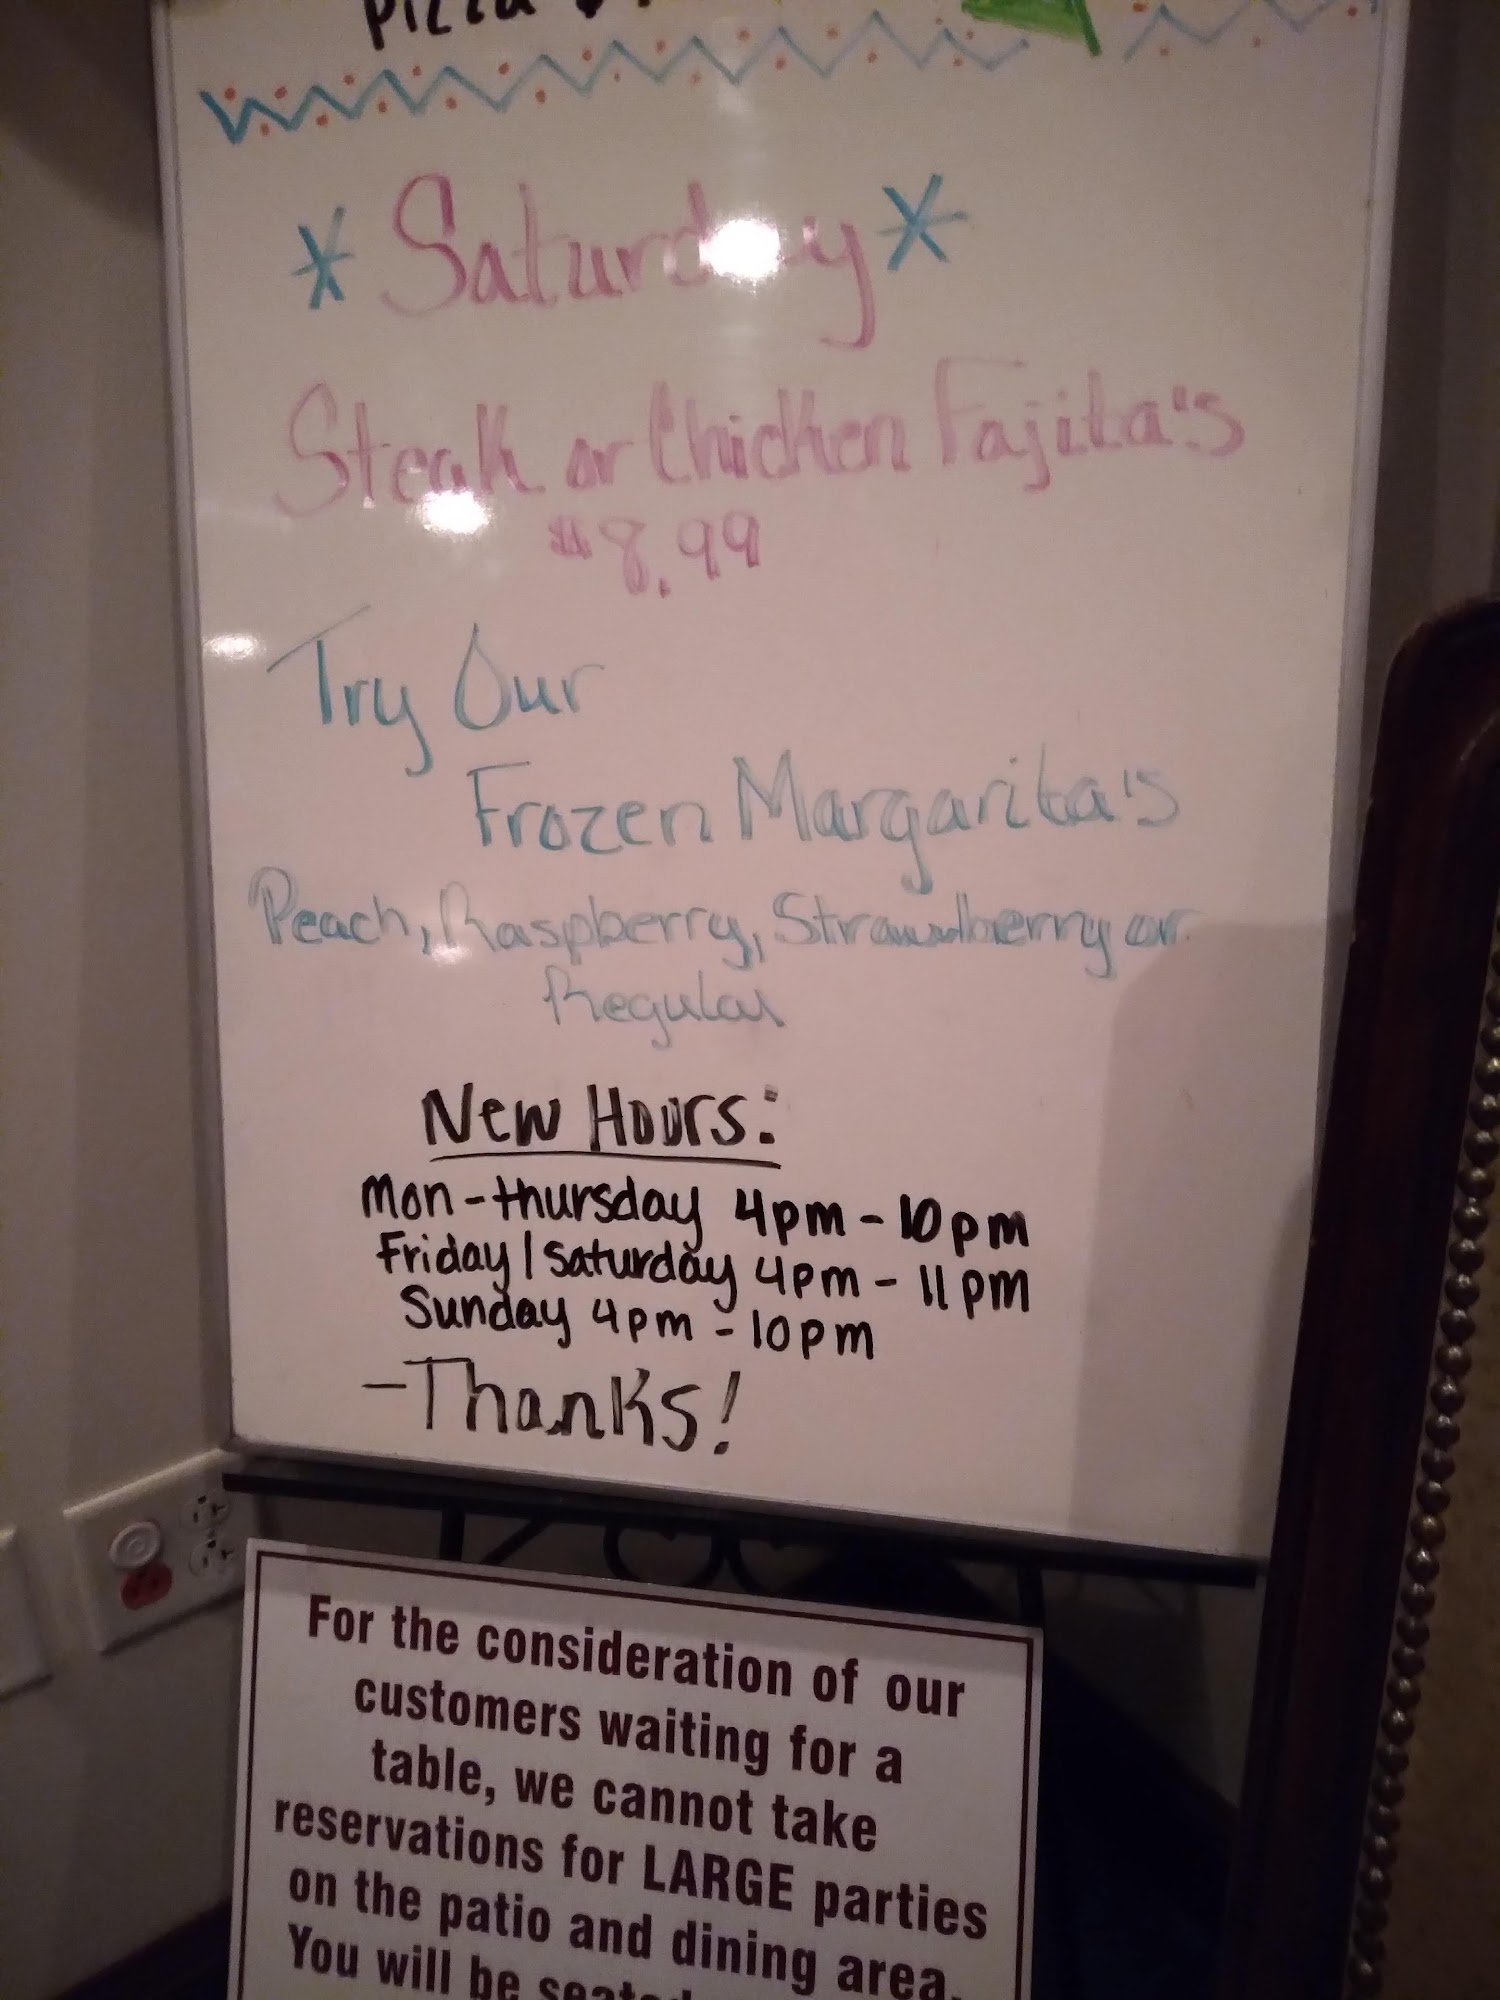 Pizza
*Saturday*
Steak or Chicken Fajita's
$8.99
Try Our
Frozen Margarita's
Peach, Raspberry, Strawberry or
Regular
New Hours:
Mon-thursday 4pm-10pm
Friday/Saturday 4pm-11pm
Sunday 4pm-10pm
-Thanks!
For the consideration of our
customers waiting for a
table, we cannot take
reservations for LARGE parties
on the patio and dining area.
You will be seated